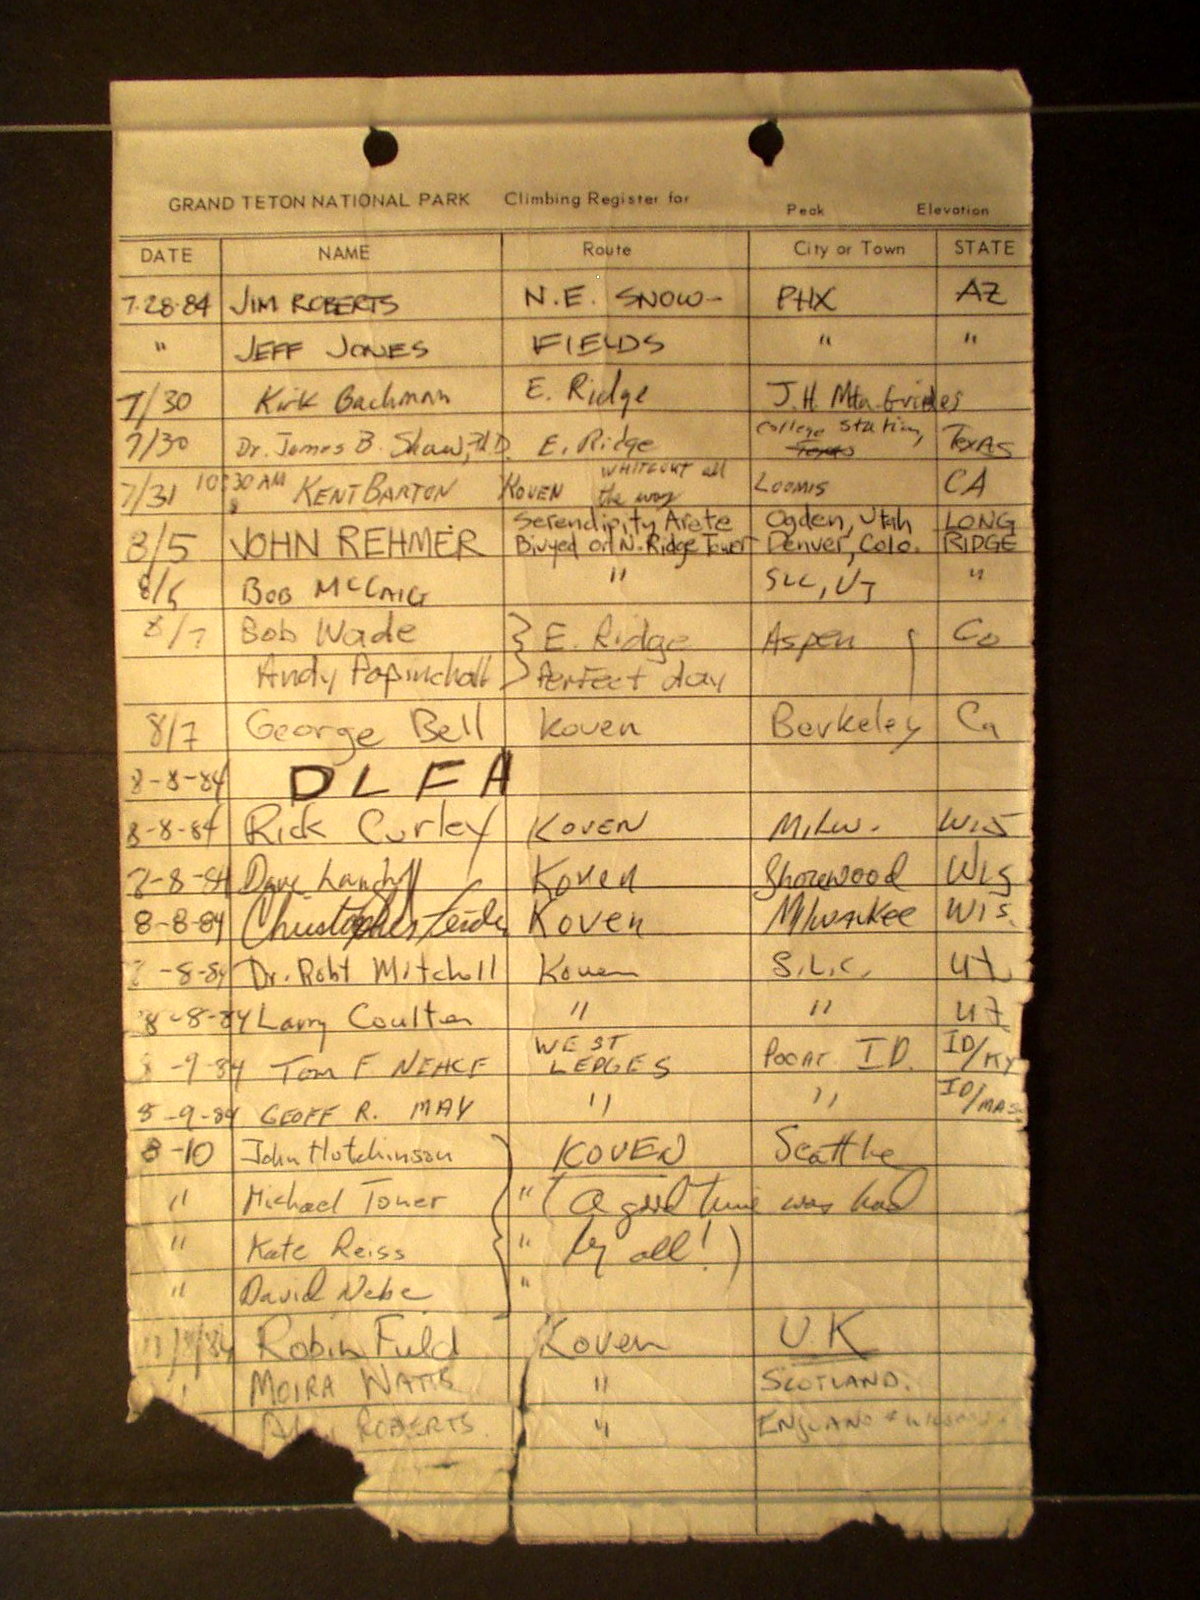 GRAND TETON NATIONAL PARK Climbing Register for Peak Elevation
DATE NAME Route City or Town STATE
7-28-84 JIM ROBERTS N.E. SNOW- PHX AZ
" JEFF JONES FIELDS " "
7/30 Kirk Bachman E. Ridge J.H. Mtn. Guides
7/30 Dr. James B. Shaw, Ph.D. E. Ridge College Station, Texas
7/31 10:30 AM KENT BARTON KOVEN WHITEOUT all the way LOOMIS CA
8/5 JOHN REHMER Serendipity Arete Ogden, Utah LONG
Bivyed on N. Ridge Tower Denver, Colo. RIDGE
8/5 BOB MCCAIG " SLC, UT "
8/7 Bob Wade } E. Ridge Aspen Co
Andy Perfect day
8/7 George Bell Koven Berkeley Ca
8-8-84 DLFA
8-8-84 Rick Curley KOVEN MILW. WIS
8-8-84 Dave Koven Shorewood Wis
8-8-84 Christopher Koven Milwaukee Wis.
8-8-84 Dr. Robt Mitchell Koven S.L.C. Ut
8-8-84 Larry Coulter " " UT
-9-84 TOM F NEACE WEST LEDGES POCAT. ID. ID/KY
8-9-84 GEOFF R. MAY " " ID/MAS
8-10 John Hutchinson KOVEN Seattle
" Michael Tower " (A good time was had
" Kate Reiss " by all!)
" David Nebe "
Robin Koven U.K
MOIRA WATTS " SCOTLAND.
ROBERTS. " ENGLAND